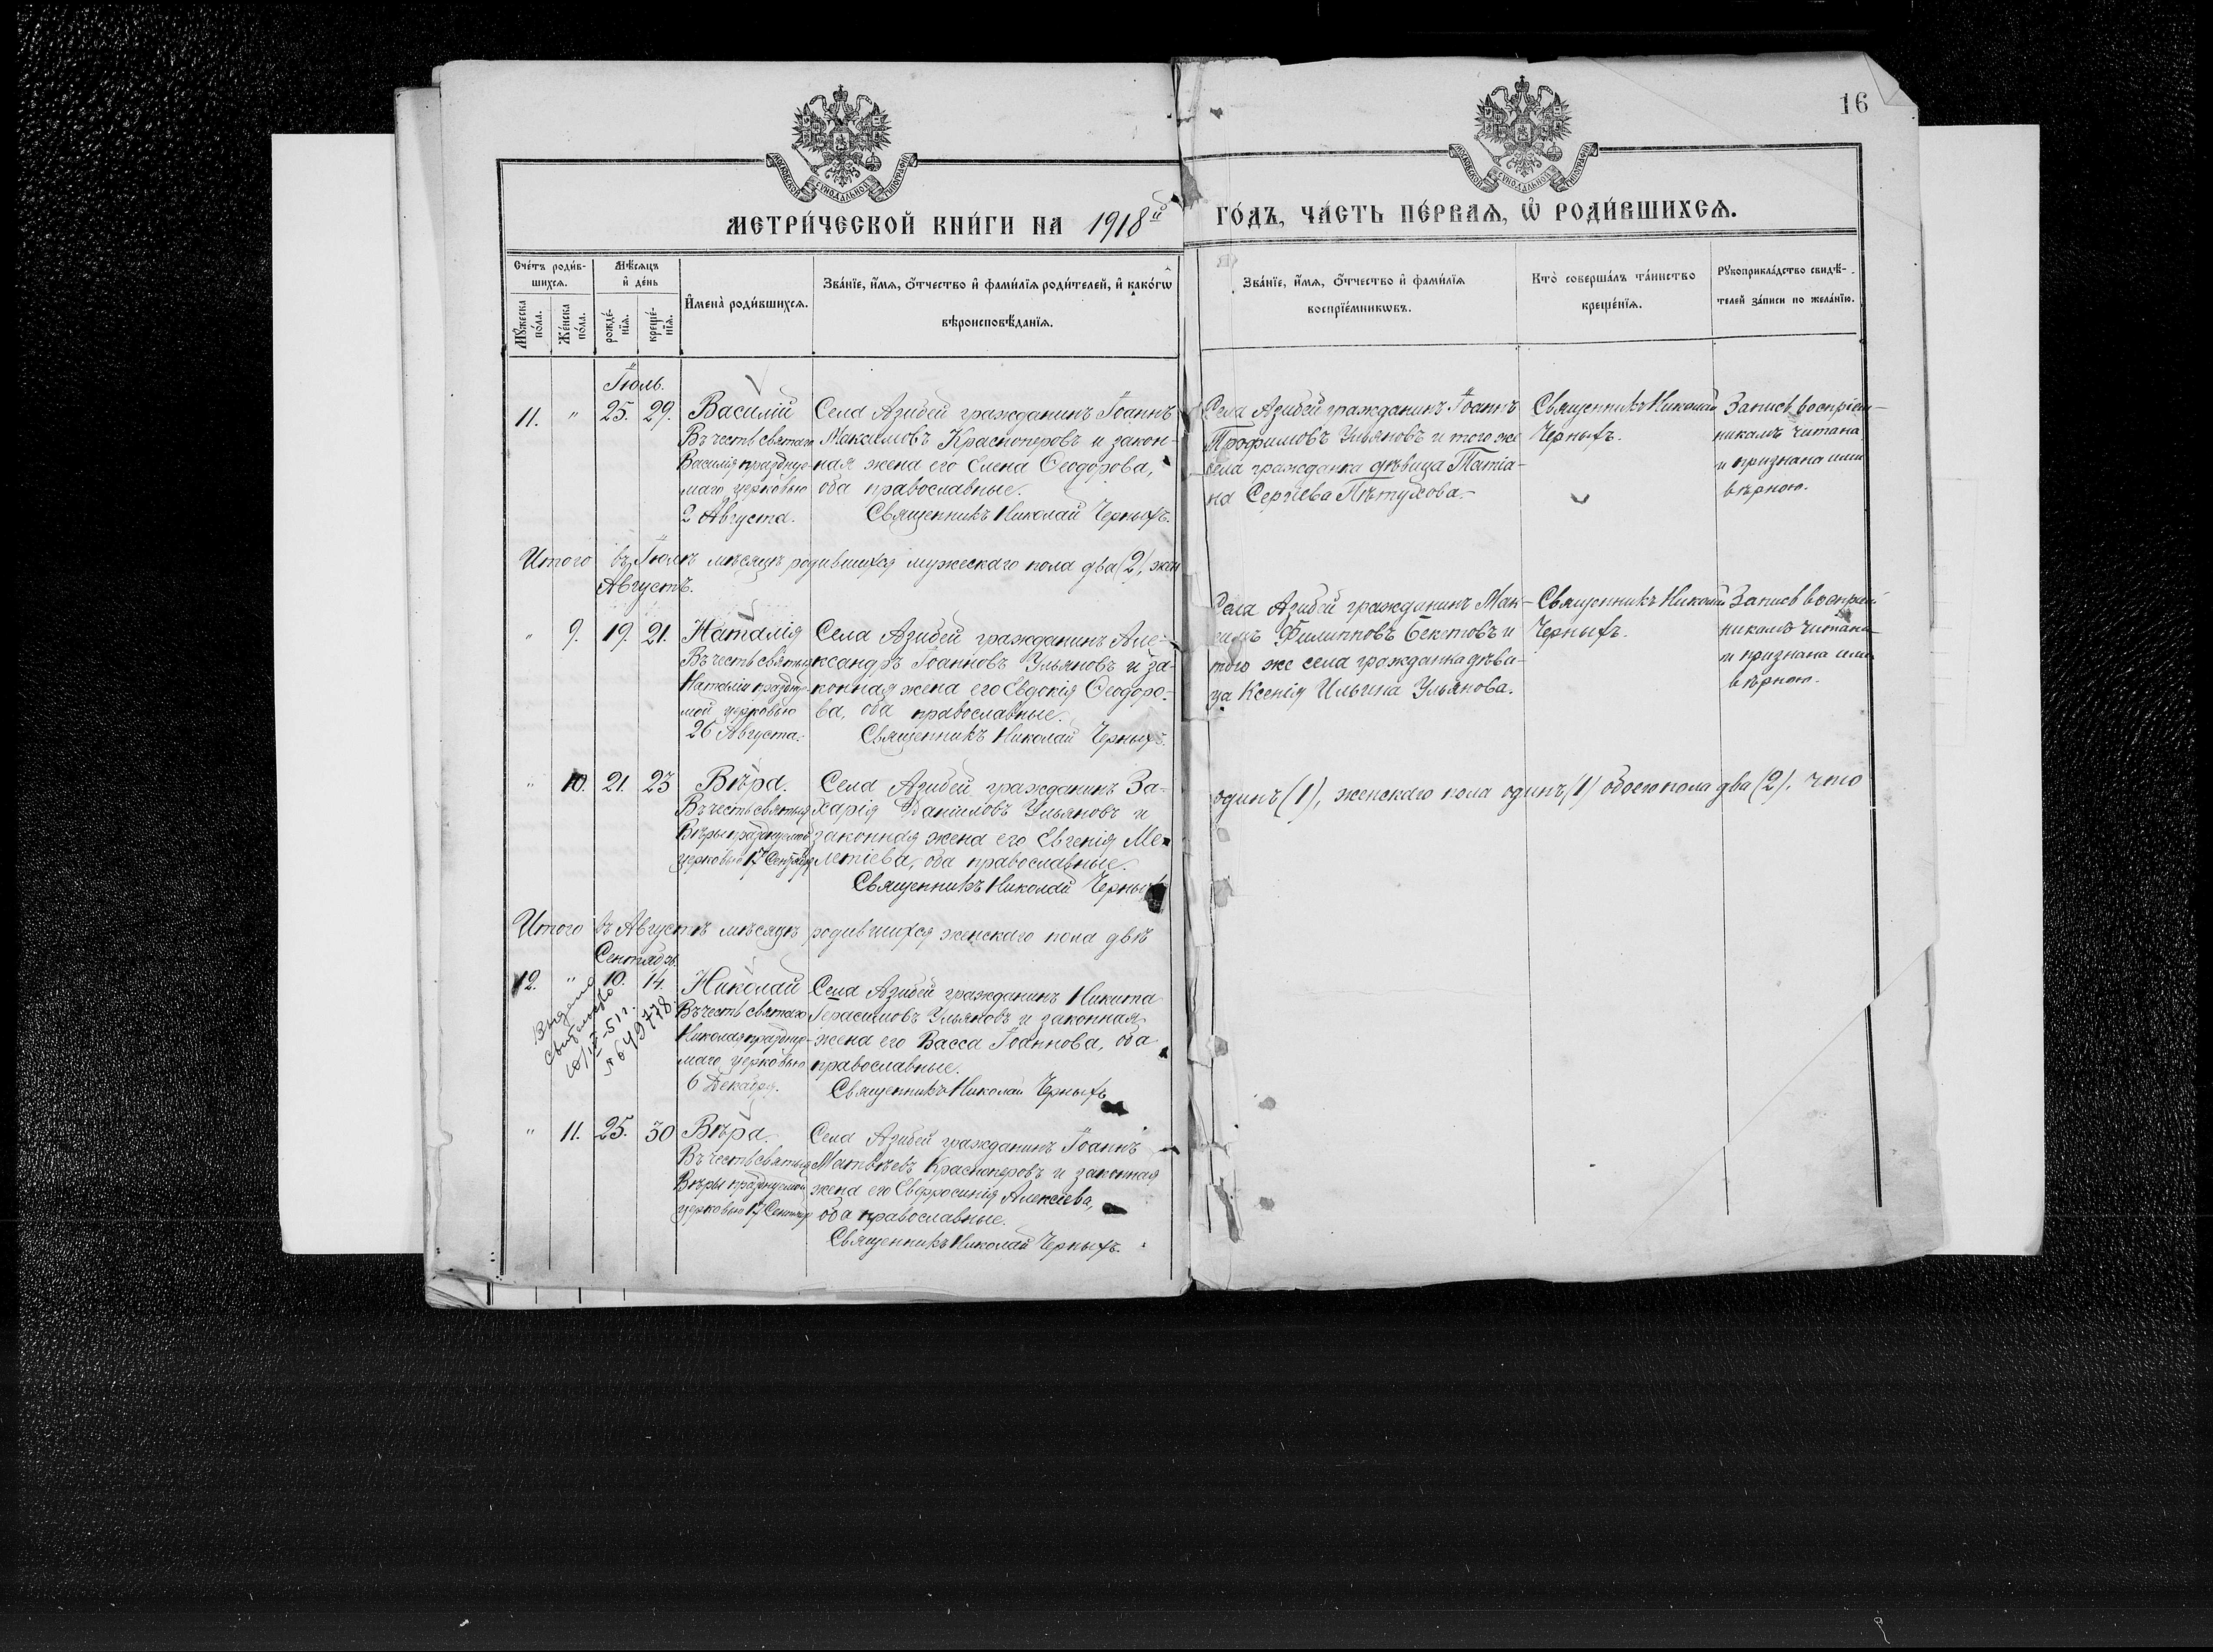 16
МОСКОВСКОЙ СѴНОДАЛЬНОЙ ТИПОГРАФІИ
МОСКОВСКОЙ СѴНОДАЛЬНОЙ ТИПОГРАФІИ
МЕТРИ́ЧЕСКОЙ КНИ́ГИ НА 1918й
ГО́ДЪ, ЧА́СТЬ ПЕ́РВАѦ, Ѡ҆ РОДИ́ВШИХСѦ.
Сче́тъ роди́в-
шихсѧ.
Мѹ́жеска по́ла.
Же́нска по́ла.
Мѣ́сѧцъ
и҆ де́нь
рожде́-
нїѧ.
креще́-
нїѧ.
И҆мена̀ роди́вшихсѧ.
Зва́нїе, и҆́мѧ, ѻ҆́тчество и҆ фами́лїѧ роди́телей, и҆ како́гѡ
вѣроисповѣ́данїѧ.
Зва́нїе, и҆́мѧ, ѻ҆́тчество и҆ фами́лїѧ
воспрїе́мникѡвъ.
Кто̀ соверша́лъ та́инство
креще́нїѧ.
Рѹкоприкла́дство свидѣ́-
телей за́писи по жела́нїю.
Іюль.
11. " 25. 29. Василій
Въ честь святаго
Василія праздную-
маго церковью
2 Августа.
Села Азибей гражданинъ Іоаннъ
Максимовъ Красноперовъ и закон-
ная жена его Елена Ѳеодорова,
оба православные.
Священникъ Николай Черныхъ.
Села Азибей гражданинъ Іоаннъ
Трофимовъ Ульяновъ и того же
села гражданка дѣвица Татіа-
на Сергіева Пѣтухова.
Священникъ Николай
Черныхъ.
Запись воспріем-
никамъ читана
и признана ими
вѣрною.
Итого въ Іюлѣ мѣсяцѣ родившихся мужескаго пола два (2), жен
Августъ.
" 9. 19. 21. Наталія
Въ честь святыя
Наталіи праздную-
мой церковью
26 Августа.
Села Азибей гражданинъ Але-
ксандръ Іоанновъ Ульяновъ и за-
конная жена его Евдокія Ѳеодоро-
ва, оба православные.
Священникъ Николай Черныхъ.
Села Азибей гражданинъ Мак-
симъ Филипповъ Бектовъ и
того же села гражданка дѣви-
ца Ксенія Ильина Ульянова.
Священникъ Николай
Черныхъ.
Запись воспріем-
никамъ читана
и признана ими
вѣрною.
" 10. 21. 23 Вѣра.
Въ честь святыя
Вѣры празднуемой
церковью 17 Сентября
Села Азибей гражданинъ За-
харія Даніиловъ Ульяновъ и
законная жена его Евгенія Ме-
летіева, оба православные.
Священникъ Николай Черныхъ
одинъ (1), женскаго пола одинъ (1) обоего пола два (2). что
Итого въ Августѣ мѣсяцѣ родившихся женскаго пола двѣ
Сентябрь.
12. " 10. 14. Николай
Въ честь святаго
Николая праздную-
маго церковью
6 Декабря.
Села Азибей гражданинъ Никита
Герасимовъ Ульяновъ и законная
жена его Васса Іоаннова, оба
православные.
Священникъ Николай Черныхъ
Выдано
свидетельство
51 г.
№ 649778
" 11. 25. 30 Вѣра.
Въ честь святыя
Вѣры празднуемой
церковью 17 Сентября
Села Азибей гражданинъ Іоаннъ
Матвѣевъ Красноперовъ и законная
жена его Евфросинія Алексіева,
оба православные.
Священникъ Николай Черныхъ.